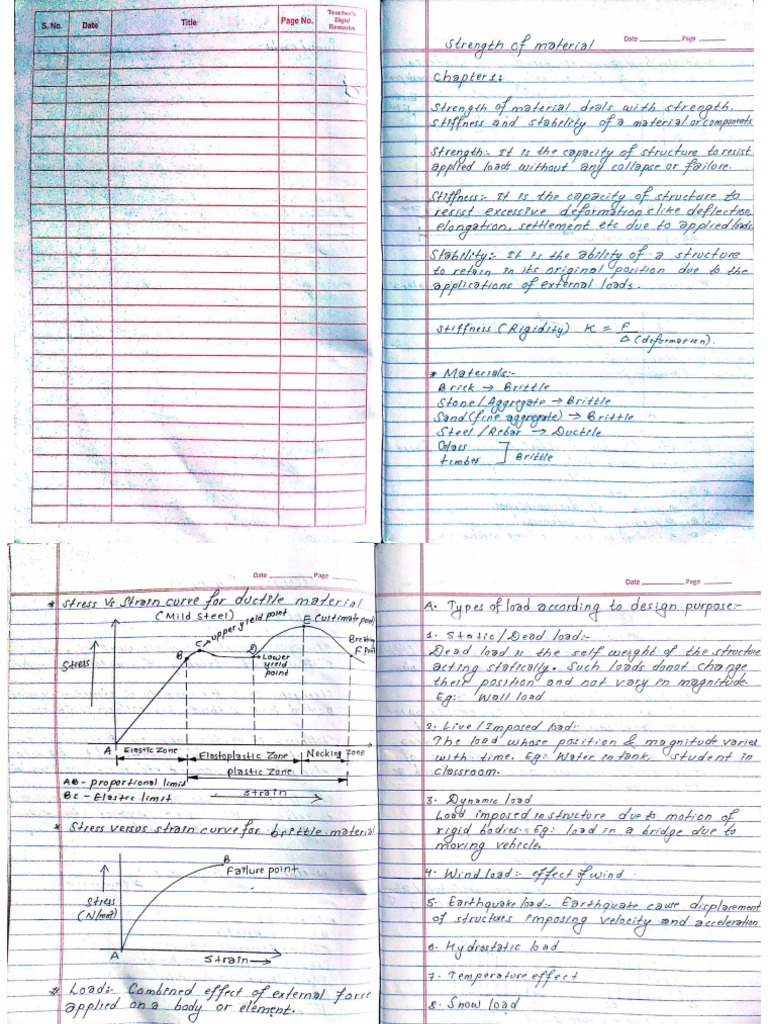 S. No. Date Title Page No. Teacher's Sign/ Remarks
Date Page
Strength of material
Chapter 1:
Strength of material deals with strength.
Stiffness and stability of a material or components
Strength:- It is the capacity of structure to resist
applied loads without any collapse or failure.
Stiffness:- It is the capacity of structure to
resist excessive deformations like deflection,
elongation, settlement etc due to applied loads
Stability:- It is the ability of a structure
to retain in its original position due to the
applications of external loads.
Stiffness (Rigidity) K = F
Δ (deformation).
* Materials:-
Brick → Brittle
Stone/Aggregate → Brittle
Sand (fine aggregate) → Brittle
Steel/Rebar → Ductile
Glass
timber ] Brittle
Date Page
* Stress Vs Strain curve for ductile material
(Mild Steel)
E (Ultimate point)
C upper yield point
Stress
B
D
Lower yield point
F
A
Elastic Zone Elastoplastic Zone Necking Zone
plastic zone
AB - proportional limit
BC - Elastic limit
strain
* Stress versus strain curve for brittle material
B
Failure point
Stress
(N/mm²)
A
Strain
* Load:- Combined effect of external force
applied on a body or element.
Date Page
A. Types of load according to design purpose:-
1. Static/Dead load:-
Dead load is the self weight of the structure
acting statically. Such loads donot change
their position and not vary in magnitude.
Eg:- Wall load
2. Live/Imposed load:-
The load whose position & magnitude varies
with time. Eg: Water in tank, student in
classroom.
3. Dynamic load
Load imposed in structure due to motion of
rigid bodies. Eg: load in a bridge due to
moving vehicle.
4. Wind load:- effect of wind
5. Earthquake load:- Earthquake cause displacement
of structures imposing velocity and acceleration
6. Hydrostatic load
7. Temperature effect
8. Snow load